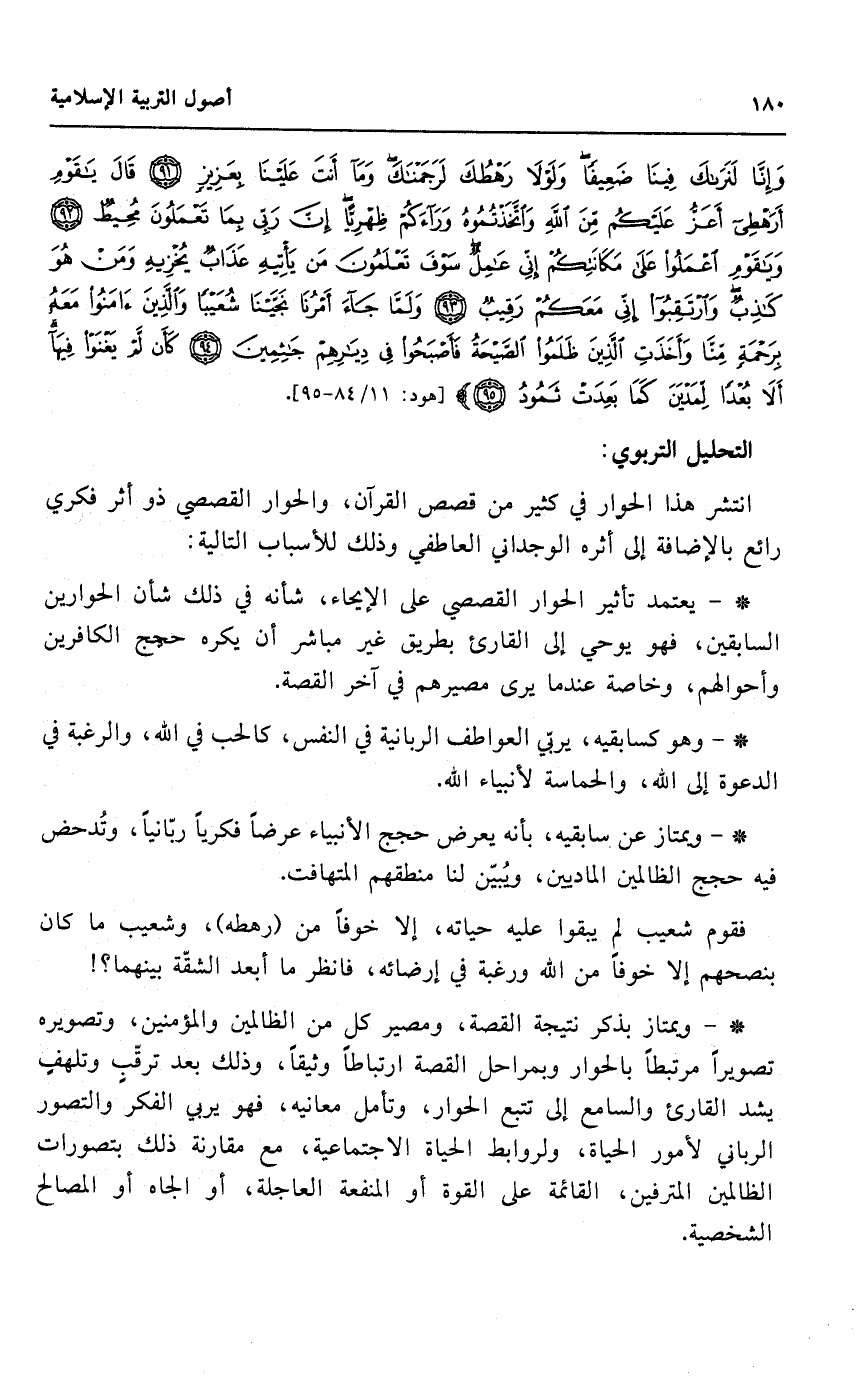 ١٨٠ أصول التربية الإسلامية
وَإِنَّا لَنَرَىٰكَ فِينَا ضَعِيفًاۖ وَلَوْلَا رَهْطُكَ لَرَجَمْنَٰكَۖ وَمَآ أَنتَ عَلَيْنَا بِعَزِيزٖ ﴿٩١﴾ قَالَ يَٰقَوْمِ
أَرَهْطِيٓ أَعَزُّ عَلَيْكُم مِّنَ ٱللَّهِ وَٱتَّخَذْتُمُوهُ وَرَآءَكُمْ ظِهْرِيًّاۖ إِنَّ رَبِّي بِمَا تَعْمَلُونَ مُحِيطٞ ﴿٩٢﴾
وَيَٰقَوْمِ ٱعْمَلُوا۟ عَلَىٰ مَكَانَتِكُمْ إِنِّي عَٰمِلٞۖ سَوْفَ تَعْلَمُونَ مَن يَأْتِيهِ عَذَابٞ يُخْزِيهِ وَمَنْ هُوَ
كَٰذِبٞۖ وَٱرْتَقِبُوٓا۟ إِنِّي مَعَكُمْ رَقِيبٞ ﴿٩٣﴾ وَلَمَّا جَآءَ أَمْرُنَا نَجَّيْنَا شُعَيْبًا وَٱلَّذِينَ ءَامَنُوا۟ مَعَهُۥ
بِرَحْمَةٖ مِّنَّا وَأَخَذَتِ ٱلَّذِينَ ظَلَمُوا۟ ٱلصَّيْحَةُ فَأَصْبَحُوا۟ فِي دِيَٰرِهِمْ جَٰثِمِينَ ﴿٩٤﴾ كَأَن لَّمْ يَغْنَوْا۟ فِيهَآۗ
أَلَا بُعْدًا لِّمَدْيَنَ كَمَا بَعِدَتْ ثَمُودُ ﴿٩٥﴾﴾ [هود: ١١/ ٨٤-٩٥].
التحليل التربوي:
انتشر هذا الحوار في كثير من قصص القرآن، والحوار القصصي ذو أثر فكري
رائع بالإضافة إلى أثره الوجداني العاطفي وذلك للأسباب التالية:
* - يعتمد تأثير الحوار القصصي على الإيحاء، شأنه في ذلك شأن الحوارين
السابقين، فهو يوحي إلى القارئ بطريق غير مباشر أن يكره حجج الكافرين
وأحوالهم، وخاصة عندما يرى مصيرهم في آخر القصة.
* - وهو كسابقيه، يربّي العواطف الربانية في النفس، كالحب في الله، والرغبة في
الدعوة إلى الله، والحماسة لأنبياء الله.
* - ويمتاز عن سابقيه، بأنه يعرض حجج الأنبياء عرضاً فكرياً ربّانياً، وتُدحض
فيه حجج الظالمين الماديين، ويُبيّن لنا منطقهم المتهافت.
فقوم شعيب لم يبقوا عليه حياته، إلا خوفاً من (رهطه)، وشعيب ما كان
بنصحهم إلا خوفاً من الله ورغبة في إرضائه، فانظر ما أبعد الشقّة بينهما؟!
* - ويمتاز بذكر نتيجة القصة، ومصير كل من الظالمين والمؤمنين، وتصويره
تصويراً مرتبطاً بالحوار وبمراحل القصة ارتباطاً وثيقاً، وذلك بعد ترقّبٍ وتلهفٍ
يشد القارئ والسامع إلى تتبع الحوار، وتأمل معانيه، فهو يربي الفكر والتصور
الرباني لأمور الحياة، ولروابط الحياة الاجتماعية، مع مقارنة ذلك بتصورات
الظالمين المترفين، القائمة على القوة أو المنفعة العاجلة، أو الجاه أو المصالح
الشخصية.